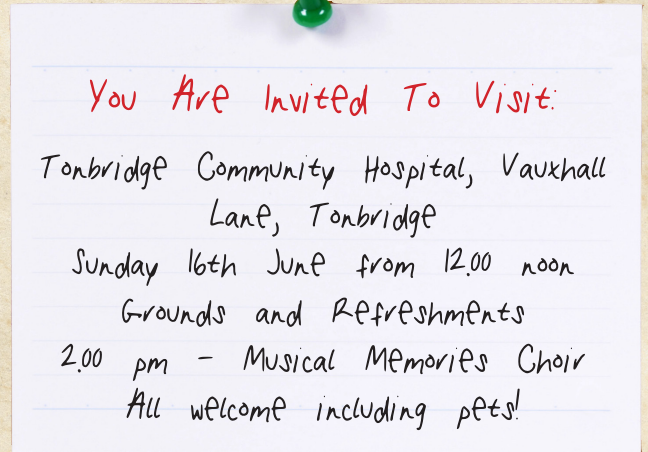 You Are Invited To Visit:
Tonbridge Community Hospital, Vauxhall
Lane, Tonbridge
Sunday 16th June from 12.00 noon
Grounds and Refreshments
2.00 pm - Musical Memories Choir
All welcome including pets!